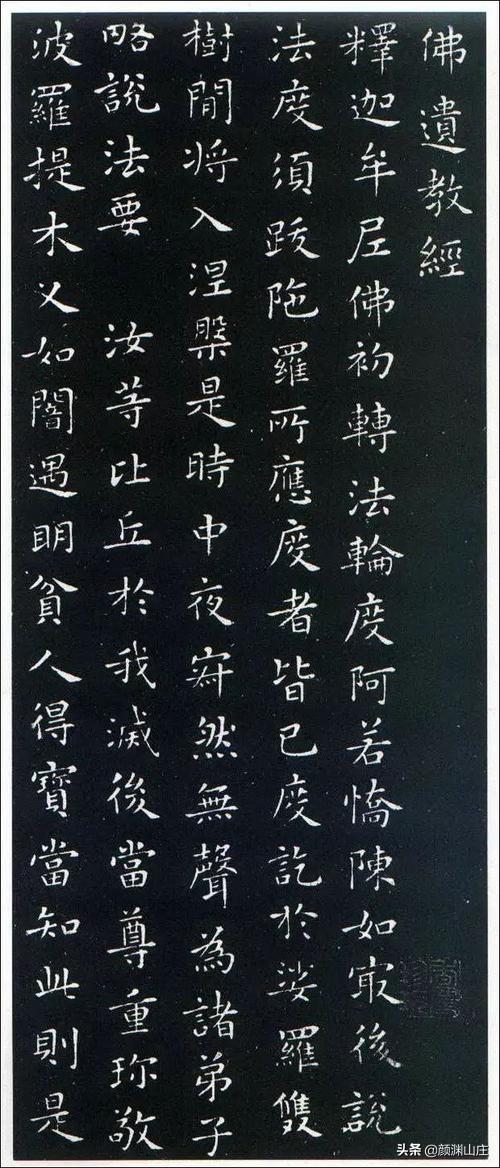 佛遺教經
釋迦牟尼佛初轉法輪度阿若憍陳如㝡後說
法度須跋陁羅所應度者皆已度訖於娑羅雙
樹間将入涅槃是時中夜寂然無聲為諸弟子
略說法要　汝等比丘於我滅後當尊重珎敬
波羅提木叉如闇遇明貧人得寶當知此則是
头条 @颜渊山庄